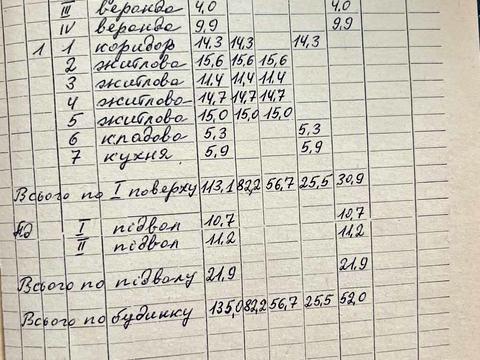 III веранда 4,0 4,0
IV веранда 9,9 9,9
1 1 коридор 14,3 14,3 14,3
2 житлова 15,6 15,6 15,6
3 житлова 11,4 11,4 11,4
4 житлова 14,7 14,7 14,7
5 житлова 15,0 15,0 15,0
6 кладова 5,3 5,3
7 кухня 5,9 5,9
Всього по I поверху 113,1 82,2 56,7 25,5 30,9
пд I підвал 10,7 10,7
II підвал 11,2 11,2
Всього по підвалу 21,9 21,9
Всього по будинку 135,0 82,2 56,7 25,5 52,0